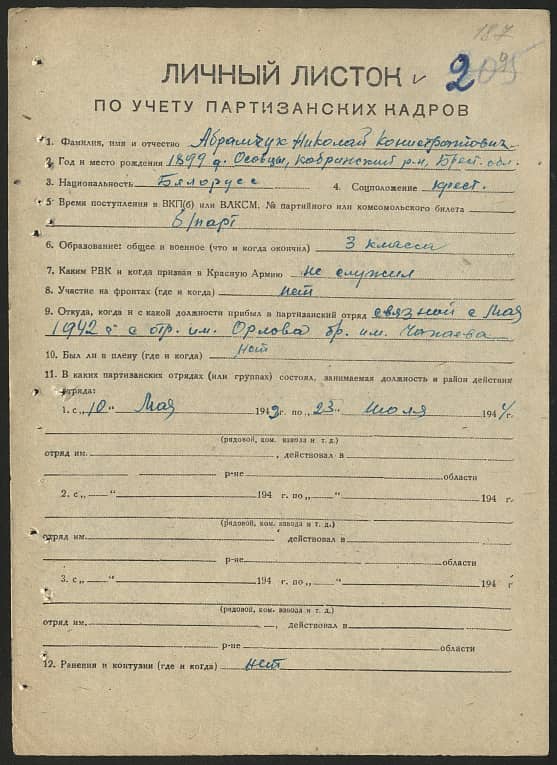 187
ЛИЧНЫЙ ЛИСТОК
2095
ПО УЧЕТУ ПАРТИЗАНСКИХ КАДРОВ
1. Фамилия, имя и отчество Абрамчук Николай
2. Год и место рождения 1899 г. Осовцы, Кобринский р-н, Брест. обл.
3. Национальность Бялорусс 4. Соцположение крест.
5. Время поступления в ВКП(б) или ВЛКСМ, № партийного или комсомольского билета
б/парт
6. Образование: общее и военное (что и когда окончил) 3 класса
7. Каким РВК и когда призван в Красную Армию не служил
8. Участие на фронтах (где и когда) нет
9. Откуда, когда и с какой должности прибыл в партизанский отряд связной с Мая
1942 г. с отр. им. Орлова бр. им. Чапаева
10. Был ли в плену (где и когда) нет
11. В каких партизанских отрядах (или группах) состоял, занимаемая должность и район действия
отряда:
1. с „10“ Мая 1942 г. по „23“ июля 1944 г.
(рядовой, ком. взвода и т. д.)
отряд им. , действовал в
р-не области
2. с „ “ 194 г. по „ “ 194 г.
(рядовой, ком. взвода и т. д.)
отряд им. действовал в
р-не области
3. с „ “ 194 г. по „ “ 194 г
(рядовой, ком. взвода и т. д.)
отряд им. , действовал в
р-не области
12. Ранения и контузии (где и когда) нет